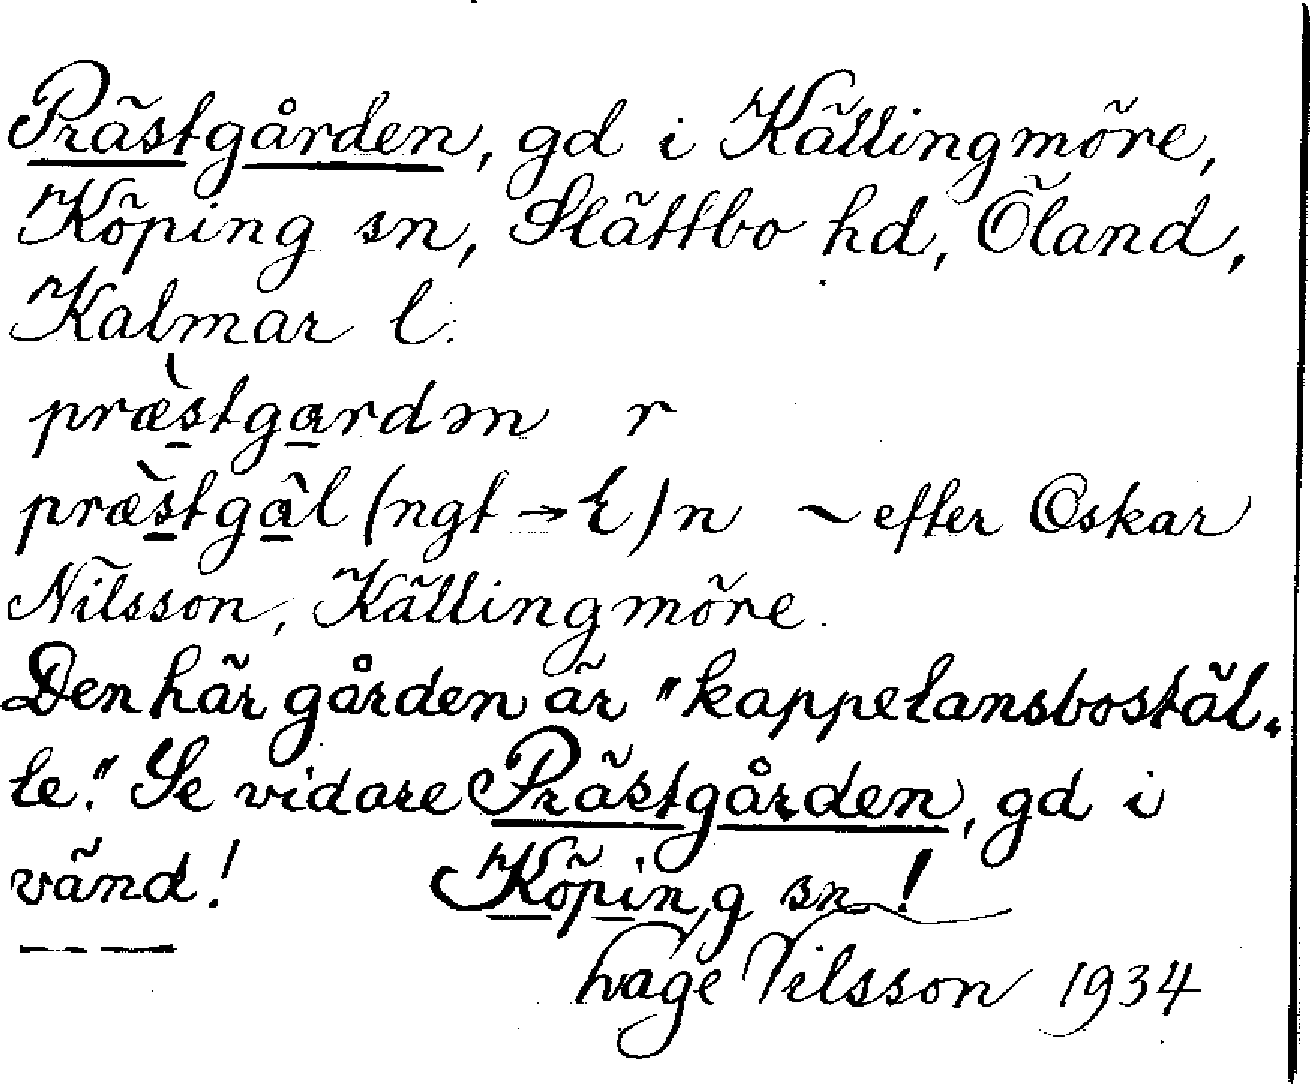 Prästgården, gd i Källingmöre,
Köping sn, Slättbo hd, Öland,
Kalmar l.
præ̀stgardən r
præ̀stgàl (ngt → ɽ) n ~ efter Oskar
Nilsson, Källingmöre.
Den här gården är "kappelansbostäl-
le." Se vidare Prästgården, gd i
vänd! Köping sn!
Nilsson 1934